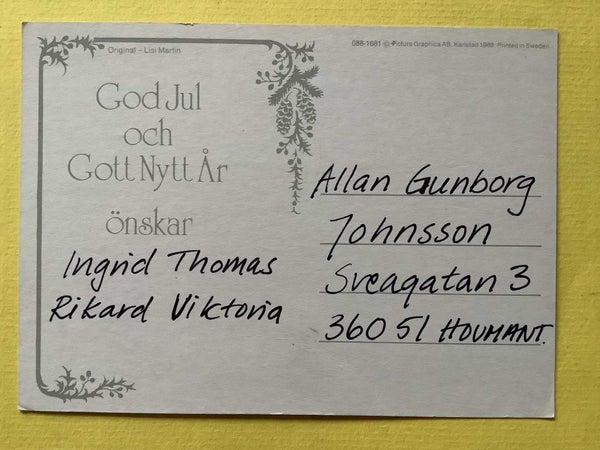 Original – Lisi Martin
088-1681 © Pictura Graphica AB, Karlstad 1988 Printed in Sweden
God Jul
och
Gott Nytt År
önskar
Ingrid Thomas
Rikard Viktoria
Allan Gunborg
Johnsson
Sveagatan 3
360 51 HOVMANT.